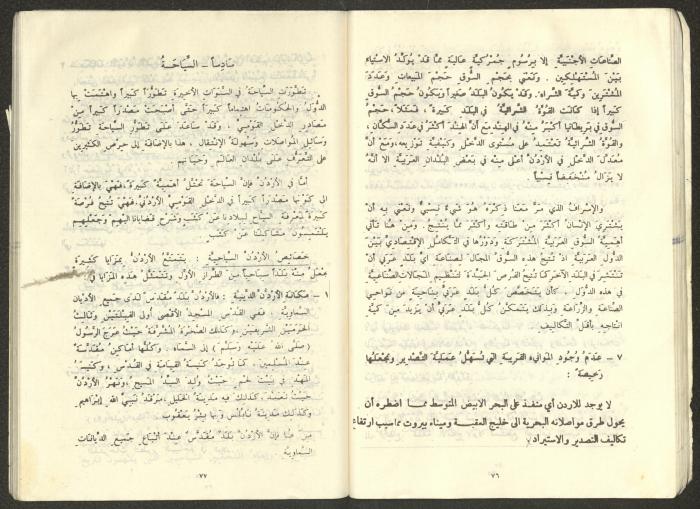 الصناعات الأجنبية إلا برسوم جمركية عالية مما قد يولد الاستياء
بين المستهلكين . ونعني بحجم السوق حجم المبيعات وعدد
المشترين وكمية الشراء . وقد يكون البلد صغيراً ويكون حجم السوق
كبيراً إذا كانت القوة الشرائية في البلد كبيرة ، فمثلاً حجم
السوق في بريطانيا أكبر منه في الهند مع أن الهند أكثر في عدد السكان ،
والقوة الشرائية تعتمد على مستوى الدخل وكيفية توزيعه ، ومع أن
معدل الدخل في الأردن أعلى منه في بعض البلدان العربية الا أنه
لا يزال منخفضاً نسبياً .
والإسراف الذي مر معنا ذكره هو شيء نسبي ونعني به أن
يشتري الإنسان أكثر من طاقته وأكثر مما ينتج . ومن هنا تأتي
أهمية السوق العربية المشتركة ودورها في التكامل الاقتصادي بين
الدول العربية اذ تتيح هذه السوق المجال لصناعة أي بلد عربي أن
تنتشر في البلد الآخر كما تتيح الفرص الجيدة لتنظيم المجالات الصناعية
في هذه الدول . كأن يتخصص كل بلد عربي بناحية من نواحي
الصناعة والزراعة وبذلك يتمكن كل بلد عربي أن يزيد من كمية
انتاجه بأقل التكاليف .
٧ – عدم وجود الموانيء القريبة التي تسهل عملية التصدير وتجعلها
رخيصة :
لا يوجد للاردن أي منفذ على البحر الابيض المتوسط مما اضطره أن
يحول طرق مواصلاته البحرية الى خليج العقبة وميناء بيروت مما سبب ارتفاع
تكاليف التصدير والاستيراد .
٧٦
سادساً – السياحة
تطورت السياحة في السنوات الأخيرة تطوراً كبيراً واهتمت بها
الدول والحكومات اهتماماً كبيراً حتى أصبحت مصدراً كبيراً من
مصادر الدخل القومي ، وقد ساعد على تطور السياحة تطور
وسائل المواصلات وسهولة الإنتقال ، هذا بالإضافة إلى حرص الكثيرين
على التعرف على بلدان العالم وحياتهم .
أما في الأردن فإن السياحة تحتل أهمية كبيرة ، فهي بالإضافة
الى كونها مصدراً كبيراً في الدخل القومي الأردني ، فهي تتيح فرصة
كبيرة لمعرفة السياح لبلادنا عن كثب وشرح قضايانا اليهم وجعلهم
يلتمسون مشاكلنا عن كثب .
خصائص الأردن السياحية : يتمتع الأردن بمزايا كثيرة
تجعل منه بلداً سياحياً من الطراز الأول وتتمثل هذه المزايا في :
١ – مكانة الأردن الدينية : فالأردن بلد مقدس لدى جميع الأديان
السماوية ، ففي القدس المسجد الأقصى أولى القبلتين وثالث
الحرمين الشريفين ، وكذلك الصخرة المشرفة حيث عرج الرسول
(صلى الله عليه وسلم) إلى السماء ، وكلها أماكن مقدسة
عند المسلمين ، كما توجد كنيسة القيامة في القدس ، وكنيسة
المهد في بيت لحم حيث ولد السيد المسيح ، ونهر الأردن
حيث تعمد ، كذلك فيه مدينة الخليل ، مرقد نبي الله إبراهيم
وكذلك مدينة نابلس وبها بئر يعقوب .
من هنا فإن الأردن بلد مقدس عند أتباع جميع الديانات
السماوية .
٧٧